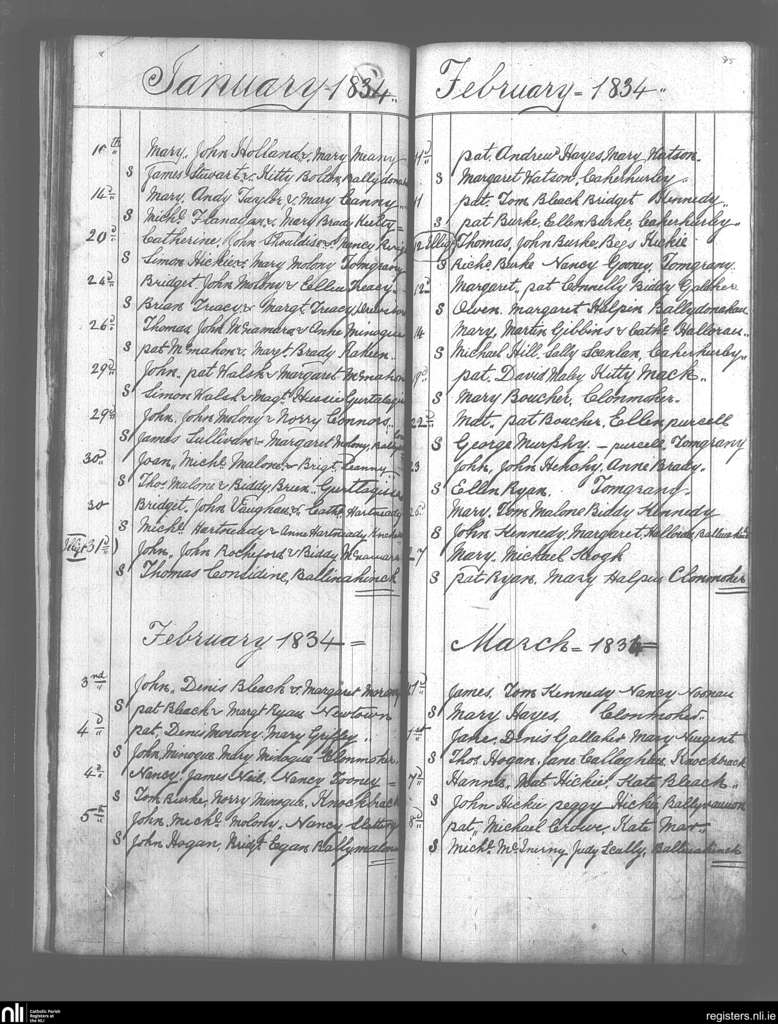 January 1834
10th Mary, John Holland & Mary Meany
S James Stewart & Kitty Bolton, Ballydonahan
14 Mary, Andy Taylor, & Mary Canny
S Michl Flanagan & Mary Brady
20 Catherine, John & Nancy
S Simon Hickie & Mary Molony Tomgrany
24 Bridget, John Molony & Ellen Treacy
S Brian Treacy & Margt Treacy
26 Thomas, John McNamara & Anne Minogue
S pat McMahon & Margt Brady Raheen
29 John, pat Walsh & Margaret McMahon
S Simon Walsh & Magt Hussie
29 John, John Molony & Norry Connors
S James Sullivan & Margaret Molony,
30 Joan, Michl Malone & Brigt Leanny
S Thos Malone & Biddy Breen
30 Bridget, John Vaughan & Cathe Hartneady
S Michl Hartneady & Anne Hartneady
31 John, John Rocheford & Biddy McNamara
S Thomas Considine, Ballinahinch
February 1834
3rd John, Denis Bleach & Margaret Morony
S pat Bleach & Margt Ryan Newtown
4 pat, Denis Morony, Mary Griffey
S John Minogue Mary Minogue Clonmoher
4 Nancy, James Neil, Nancy Tooney
S Tom Burke, Norry Minogue, Knockbrack
5th John, Michl Molony, Nancy Slattery
S John Hogan, Bridgt Egan Ballymalone
February 1834
85
pat, Andrew Hayes, Mary Watson
S Margaret Watson, Caherhurley
11 pat, Tom Bleach Bridget Kennedy
S pat Burke, Ellen Burke, Caherhurley
12 Thomas, John Burke, Bess Hickie
S Richd Burke Nancy Tomgrany
12 Margaret, pat Connelly Biddy
S Owen, Margaret Halpin Ballydonahan
14 Mary, Martin Gibbins & Cathe Halloran
S Michael Hill, Sally Scanlan, Caherhurley
pat, David Naby Kitty Mack
S Mary Boucher, Clonmoher
22 Mat, pat Boucher, Ellen purcell
S George Murphy - purcell Tomgrany
23 John, John Hehehy, Anne Brady
S Ellen Ryan, Tomgrany
Mary, Tom Malone Biddy Kennedy
S John Kennedy, Margaret
27 Mary, Michael Keogh
S pat Ryan, Mary Halpin Clonmoher
March 1834
James, Tom Kennedy Nancy Noonan
S Mary Hayes, Clonmoher
1st Jane, Denis Gallaher Mary Nugent
S Thos Hogan, Jane Callaghan, Knockbrack
Hanna, Mat Hickie, Kate Bleach
S John Hickie peggy Hickie
8 pat, Michael Crowe, Kate
S Michl McInerny Judy Scally, Ballinahinch
nli Catholic Parish
Registers at
the NLI
registers.nli.ie